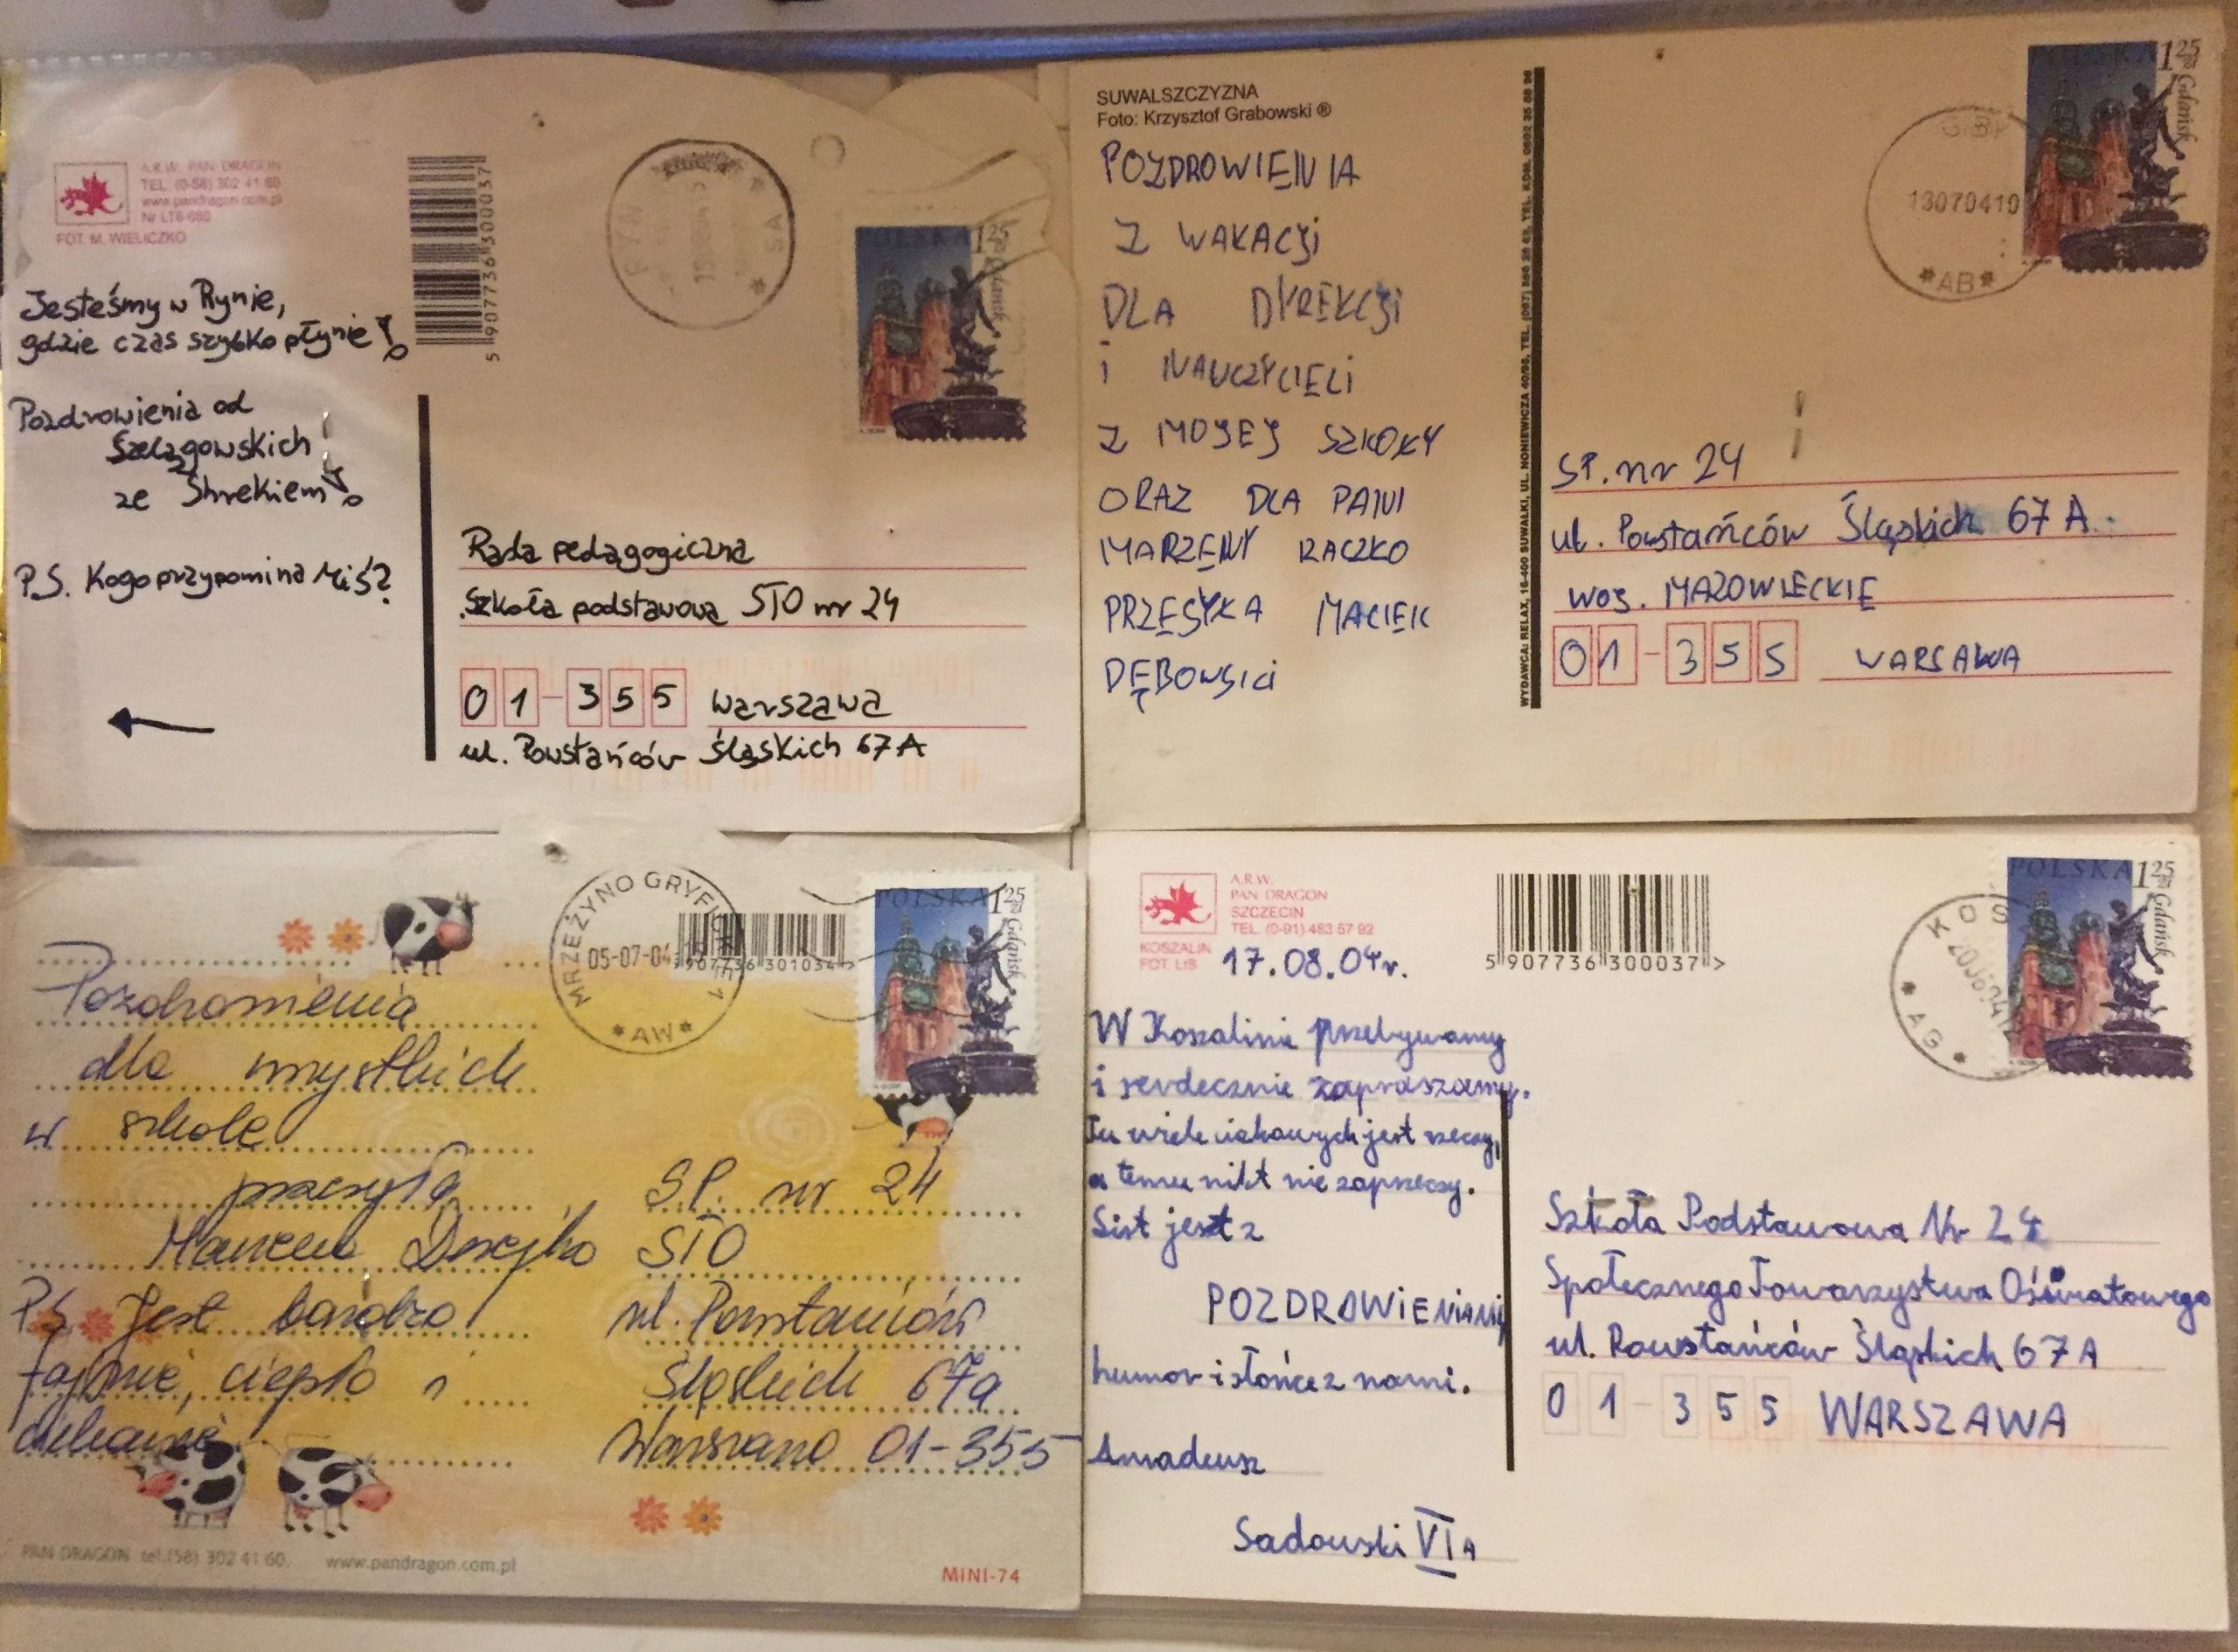 A.R.W. PAN DRAGON
TEL. (0-58) 302 41 60
www.pandragon.com.pl
Nr LT6-680
FOT. M. WIELICZKO
5 907736 300037
SA
POLSKA 1 25
Gdańsk
Jesteśmy w Rynie,
gdzie czas szybko płynie!
Pozdrowienia od
Szelągowskich
ze Shrekiem!
P.S. Kogo przypomina Miś?
Rada pedagogiczna
Szkoła podstawowa STO nr 24
01-355 Warszawa
ul. Powstańców Śląskich 67A
SUWALSZCZYZNA
Foto: Krzysztof Grabowski ®
POZDROWIENIA
Z WAKACJI
DLA DYREKCJI
i NAUCZYCIELI
Z MOJEJ SZKOŁY
ORAZ DLA PANI
MARZENY RACZKO
PRZESYŁA MACIEK
DĘBOWSKI
WYDAWCA: RELAX, 16-400 SUWAŁKI, UL. NONIEWICZA
GIBY
13070410
*AB*
POLSKA 1 25
Gdańsk
SP. nr 24
ul. Powstańców Śląskich 67A.
woj. MAZOWIECKIE
01-355 WARSAWA
MRZEŻYNO GRYFICKIE 1
05-07-04
*AW*
5907736 301034>
POLSKA 1 25
Gdańsk
Pozdrowienia
dla wszystkich
w szkole
przesyła
P.S. Jest bardzo
fajnie, ciepło i
ciekawie
S.P. nr 24
STO
ul. Powstańców
Śląskich 67a
Warszawa 01-355
PAN DRAGON tel.(58) 302 41 60. www.pandragon.com.pl
MINI-74
A.R.W.
PAN DRAGON
SZCZECIN
TEL. (0-91) 483 57 92
KOSZALIN
FOT. LIS
17.08.04r.
5 907736 300037 >
KOS
*AG*
POLSKA 1 25
Gdańsk
W Koszalinie przebywamy
i serdecznie zapraszamy.
Tu wiele ciekawych jest rzeczy,
a temu nikt nie zaprzeczy.
List jest z
POZDROWIENIAMI,
humor i słońce z nami.
Amadeusz
Sadowski VI A
Szkoła Podstawowa Nr 24
Społecznego Towarzystwa Oświatowego
ul. Powstańców Śląskich 67A
01-355 WARSZAWA